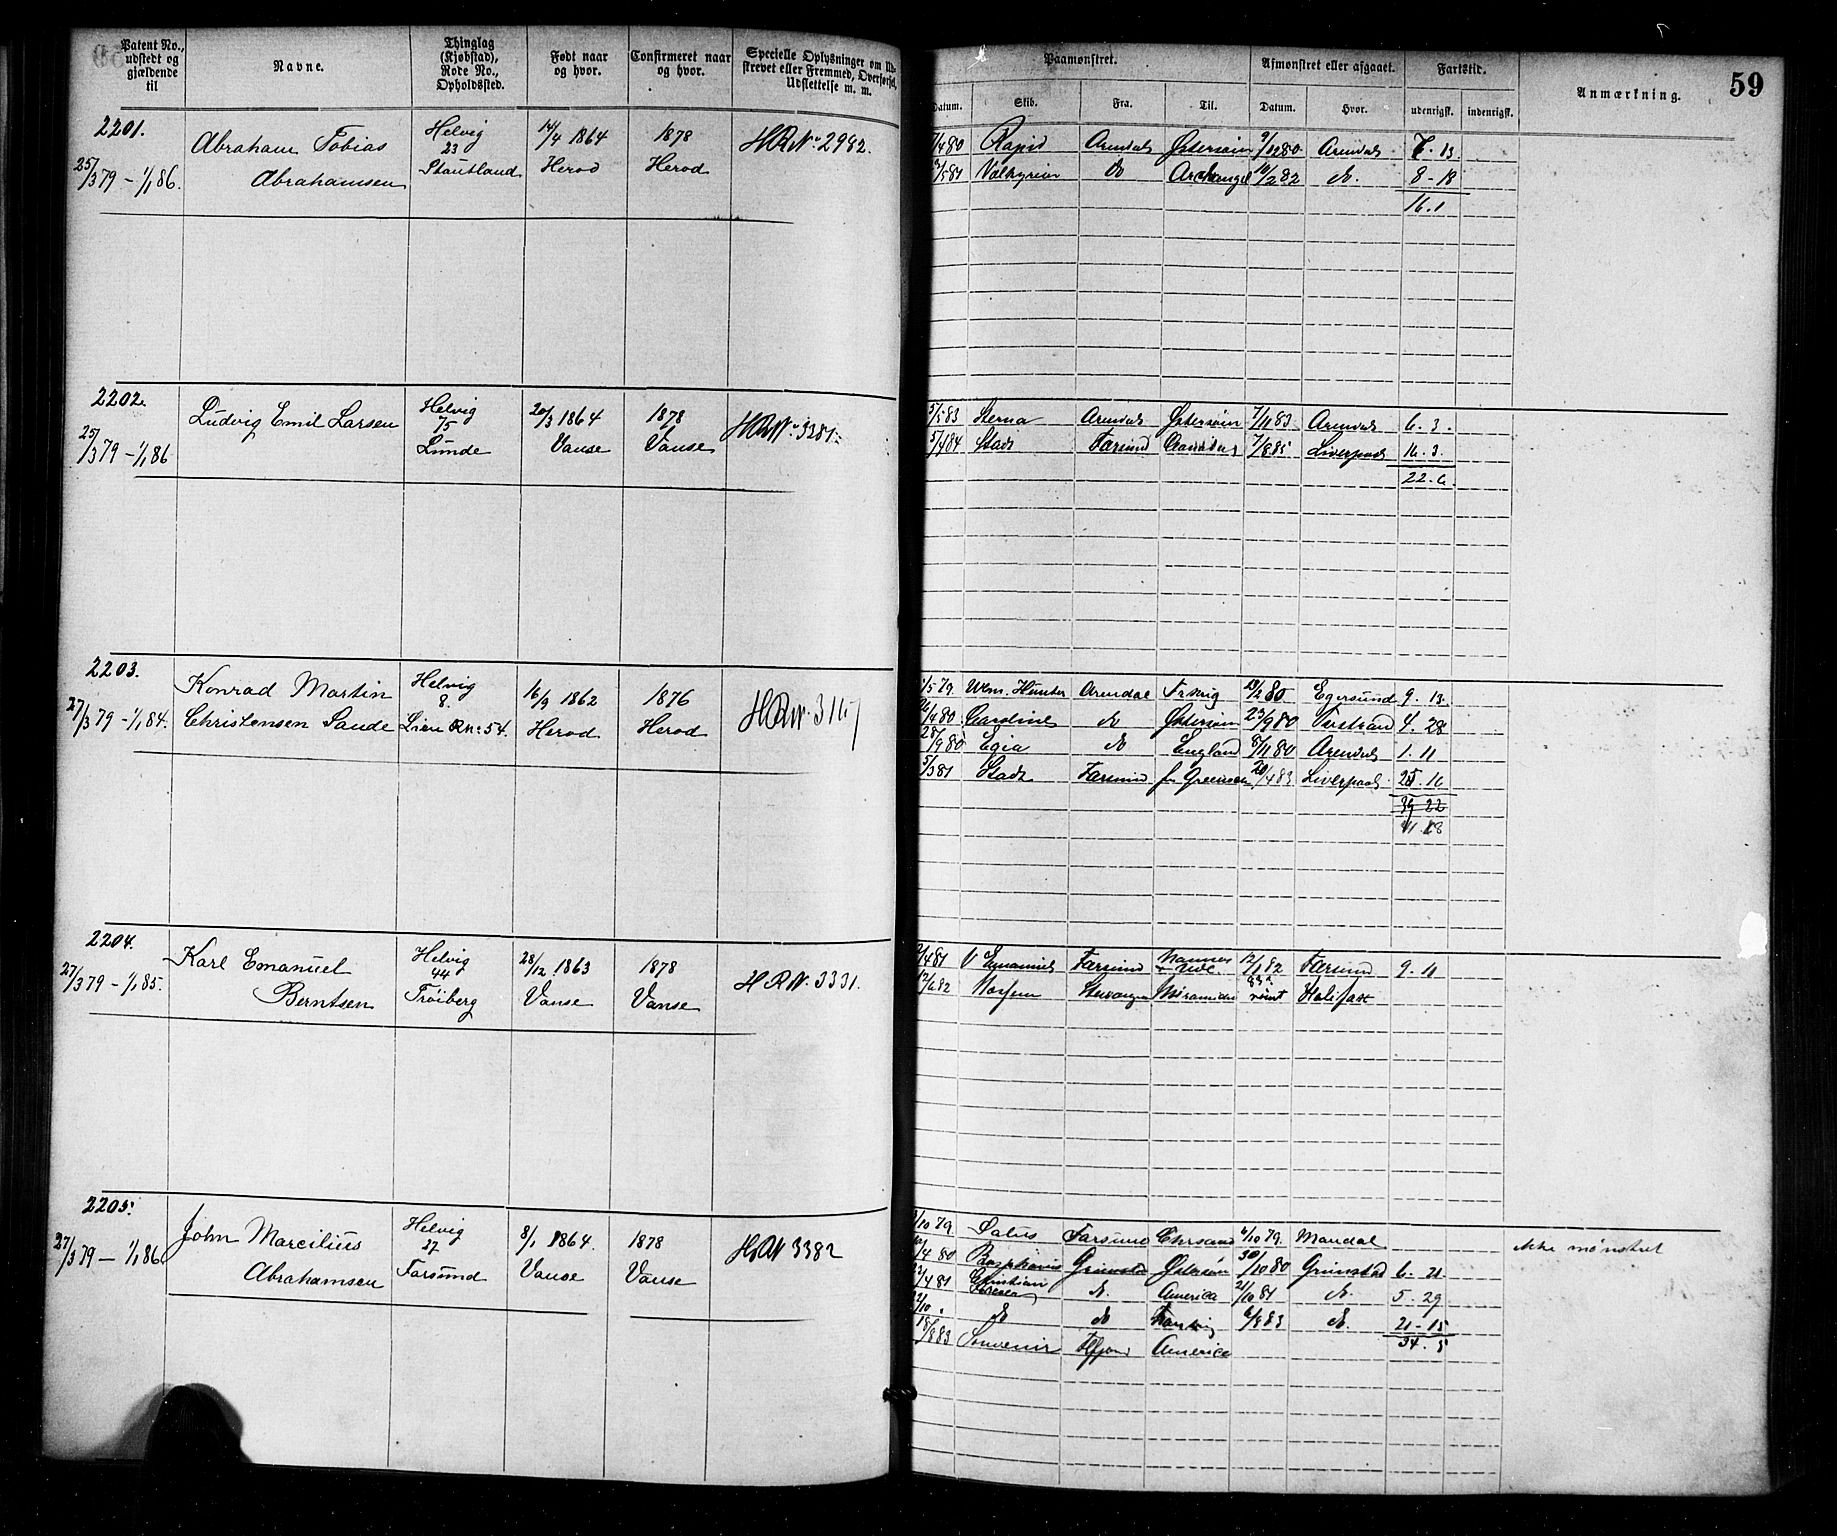 Patent No., udstedt og gjældende til
Navne.
Thinglag (Kjøbstad), Rode No., Opholdssted.
Født naar og hvor.
Confirmeret naar og hvor.
Specielle Oplysninger om Ud-skrevet eller Fremmed, Overførsel, Udslettelse m. m.
Paamønstret.
Afmønstret eller afgaaet.
Fartstid.
Anmærkning.
59
Datum.
Skib.
Fra.
Til.
Datum.
Hvor.
udenrigsk.
indenrigsk.
2201.
25/3 79 - 1/1 86.
Abraham Tobias
Abrahamsen
Helvig
23
Stautland
14/4 1864
Herod
1878
Herod
HR No 2982.
/4 80 Rapid Arendal Østersøen 9/12 80 Arendal 7. 13
/5 81 Valkyrien do Archangel 10/2 82 do. 8 - 18
16. 1
2202.
25/3 79 - 1/1 86
Ludvig Emil Larsen
Helvig
75
Lunde
20/3 1864
Vanse
1878
Vanse
HR No 3281.
5/5 83 Sterna Arendal Østersøen 7/11 83 Arendal 6. 3.
5/4 84 Stadt Farsund 7/8 85. Liverpool 16. 3.
22. 6
2203.
27/3 79 - 1/1 84.
Konrad Martin
Christensen Saude
Helvig
8.
Lien RNo 54.
16/9 1862
Herod
1876
Herod
HR No 3117
/5 79. Wm. Hunter Arendal 80 Egersund 9. 13.
/4 80 Caroline do Østersøen 23/9 80 4. 28
28/9 80 Egia do England 8/11 80 Arendal 1. 11
5/3 81 Stadt Farsund 20/4 83 Liverpool 25. 16
39 22
41. 8
2204.
27/3 79 - 1/1 85.
Karl Emanuel
Berntsen
Helvig
44
Trøiberg
28/12 1863
Vanse
1878
Vanse
HR No. 3331.
/4 81 Farsund 12/1 82 Farsund 9. 11
17/6 82 Stavanger Miramichi rømt Halifax
2205.
27/3 79 - 1/1 86
John Marcilius
Abrahamsen
Helvig
27
Farsund
8/1 1864.
Vanse
1878
Vanse
HR No 3382
/10 79. Salus Farsund Chrsand 6/10 79. Mandal ikke mønstret
/4 80 Grimstad Østersøn 30/10 80 Grimstad 6. 21.
/4 81 Christian do. America 21/10 81 do. 5. 29
/10 . do do 6/8 83 do. 21 - 15
34. 5
18/8 83 Souvenir America